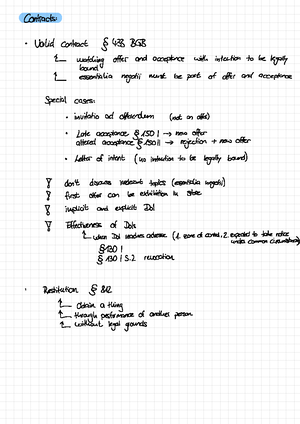 Contracts:
· Valid contract § 433 BGB
matching offer and acceptance with intention to be legally
bound
essentialia negotii must be part of offer and acceptance
Special cases:
· invitatio ad offerendum (not an offer)
· Late acceptance § 150 I → new offer
altered acceptance § 150 II → rejection + new offer
· Letter of intent (no intention to be legally bound)
don't discuss irrelevant topics (essentialia negotii)
first offer can be exhibition in store
implicit and explicit DoI
Effectiveness of DoIs
when DoI reaches adressee (1. zone of control, 2. expected to take notice
under common circumstances)
§ 130 I
§ 130 I S. 2 revocation
· Restitution § 812
Obtain a thing
through performance of another person
without legal grounds